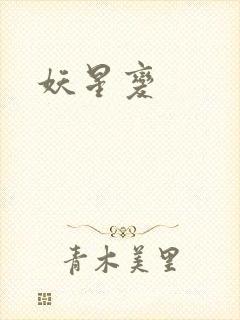 妖星變
青木美里